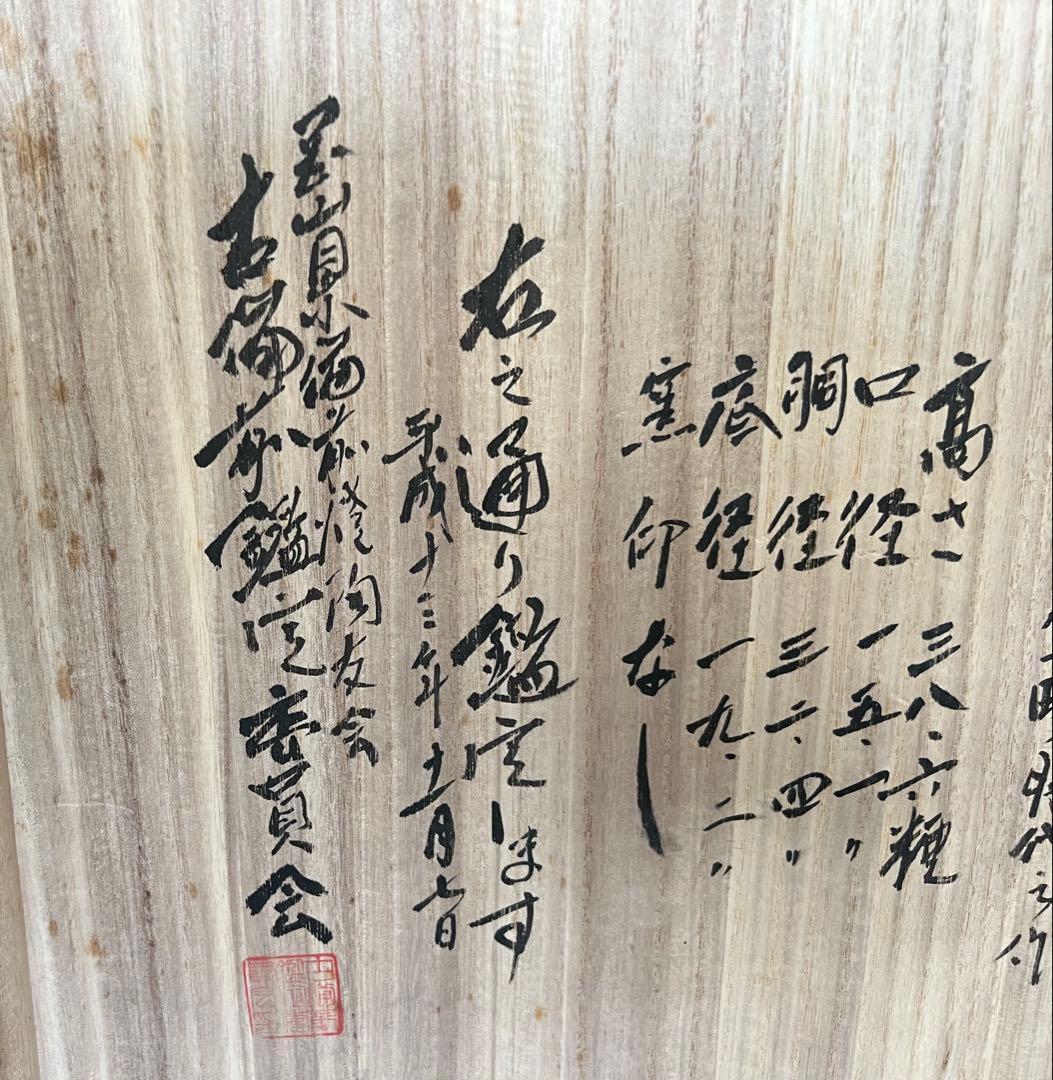 町時代之作
高さ 三八、六糎
口径 一五、一〃
胴径 三二、四〃
底径 一九、二〃
窯印なし
右之通り鑑定します
平成十三年十一月七日
岡山県備前焼陶友会
古備前鑑定委員会